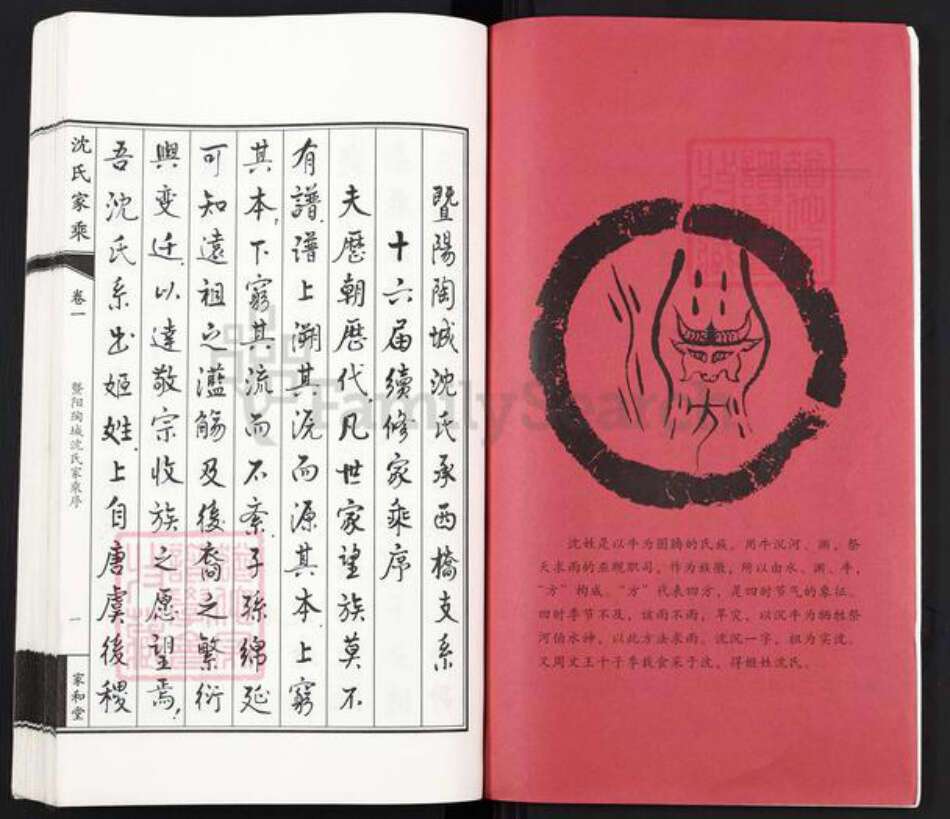 沈姓是以牛为图腾的氏族。用牛沉河、渊，祭
天求雨的巫觋职司，作为族徽，所以由水、渊、牛，
“方”构成。“方”代表四方，是四时节气的象征。
四时季节不及，该雨不雨，旱灾，以沉牛为牺牲祭
河伯水神，以此方法求雨。沈沉一字，
又周文王十子季载食采于沈，得姬姓沈氏。
暨陽陶城沈氏承西橋支系
十六届續修家乘序
夫歷朝歷代凡世家望族莫不
有譜譜上溯其流而源其本上窮
其本下窮其流而不紊子孫綿延
可知遠祖之濫觴及後裔之繁衍
與变迁以達敬宗收族之愿望焉
吾沈氏系出姬姓上自唐虞後稷
沈氏家乘
卷一
暨阳陶城沈氏家乘序
一
家和堂
FamilySearch